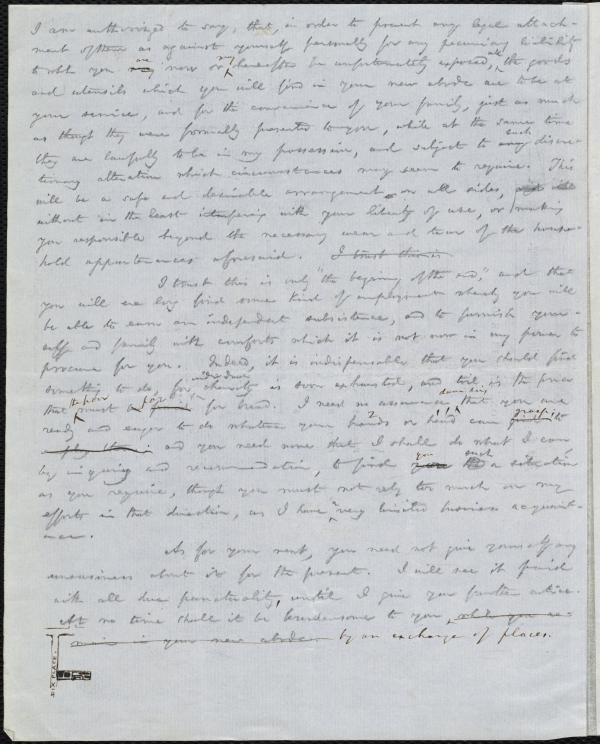 I am authorized to say, that, in order to prevent any legal attach-
ment of them as against yourself personally for any pecuniary liability
to which you are now or may hereafter be unfortunately exposed, all the goods
and utensils which you will find in your new abode are to be at
your service, and for the convenience of your family, just as much
as though they were formally presented to you, while at the same time
they are lawfully to be in my possession, and subject to any such discre-
tionary alteration which circumstances may seem to require. This
will be a safe and desirable arrangement on all sides,
without in the least interfering with your liberty of use, or making
you responsible beyond the necessary wear and tear of the house-
hold appurtenances aforesaid. I trust this is
I trust this is only "the beginning of the end," and that
you will ere long find some kind of employment whereby you will
be able to earn an independent subsistence, and to furnish your-
self and family with comforts which it is not now in my power to
procure for you. Indeed, it is indispensable that you should find
something to do, for individual charity is soon exhausted, and toil is the price
that the poor must pay for bread. I need no assurance that you are
ready and eager to do whatever your hands or head can find to
and you need none that I shall do what I can
by inquiry and recommendation, to find you such a situation
as you require, though you must not rely too much on my
efforts in that direction, as I have very limited business acquaint-
ance.
As for your rent, you need not give yourself any
uneasiness about it for the present. I will see it paid
with all due punctuality, until I give you further advice.
At no time shall it be burdensome to you, while you re-
main in your new abode by an exchange of places.